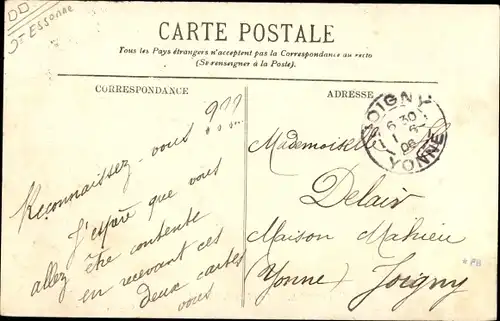 DD
St ESSONNE
CARTE POSTALE
Tous les Pays étrangers n'acceptent pas la Correspondance au recto
(Se renseigner à la Poste).
CORRESPONDANCE
Reconnaissez-vous ???
J'espère que vous
allez être contente
en recevant ces
deux cartes
vous
ADRESSE
JOIGNY
6 30
1 6
06
YONNE
Mademoiselle
Delair
Maison Mahieu
(Yonne) Joigny
*FB